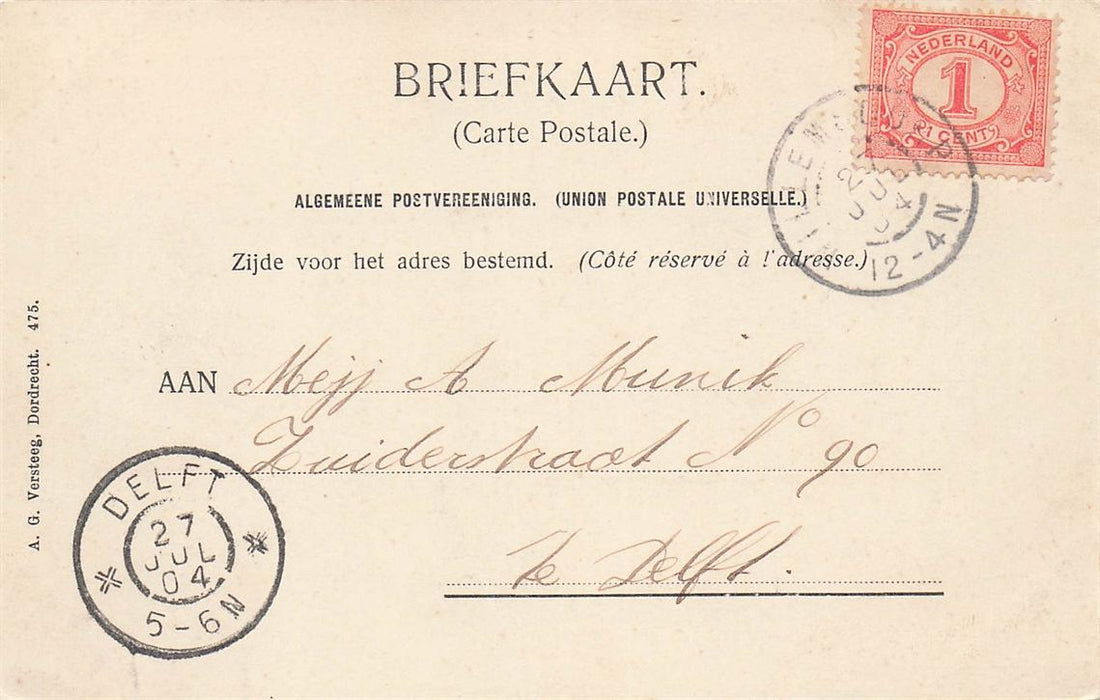 BRIEFKAART.
(Carte Postale.)
ALGEMEENE POSTVEREENIGING. (UNION POSTALE UNIVERSELLE.)
Zijde voor het adres bestemd. (Côté réservé à l'adresse.)
NEDERLAND
1
(1 CENT)
27
JUL
04
12-4N
AAN Mejj A Munik
Zuiderstraat No 90
te Delft.
A. G. Versteeg, Dordrecht. 475.
DELFT
27
JUL
04
5-6N